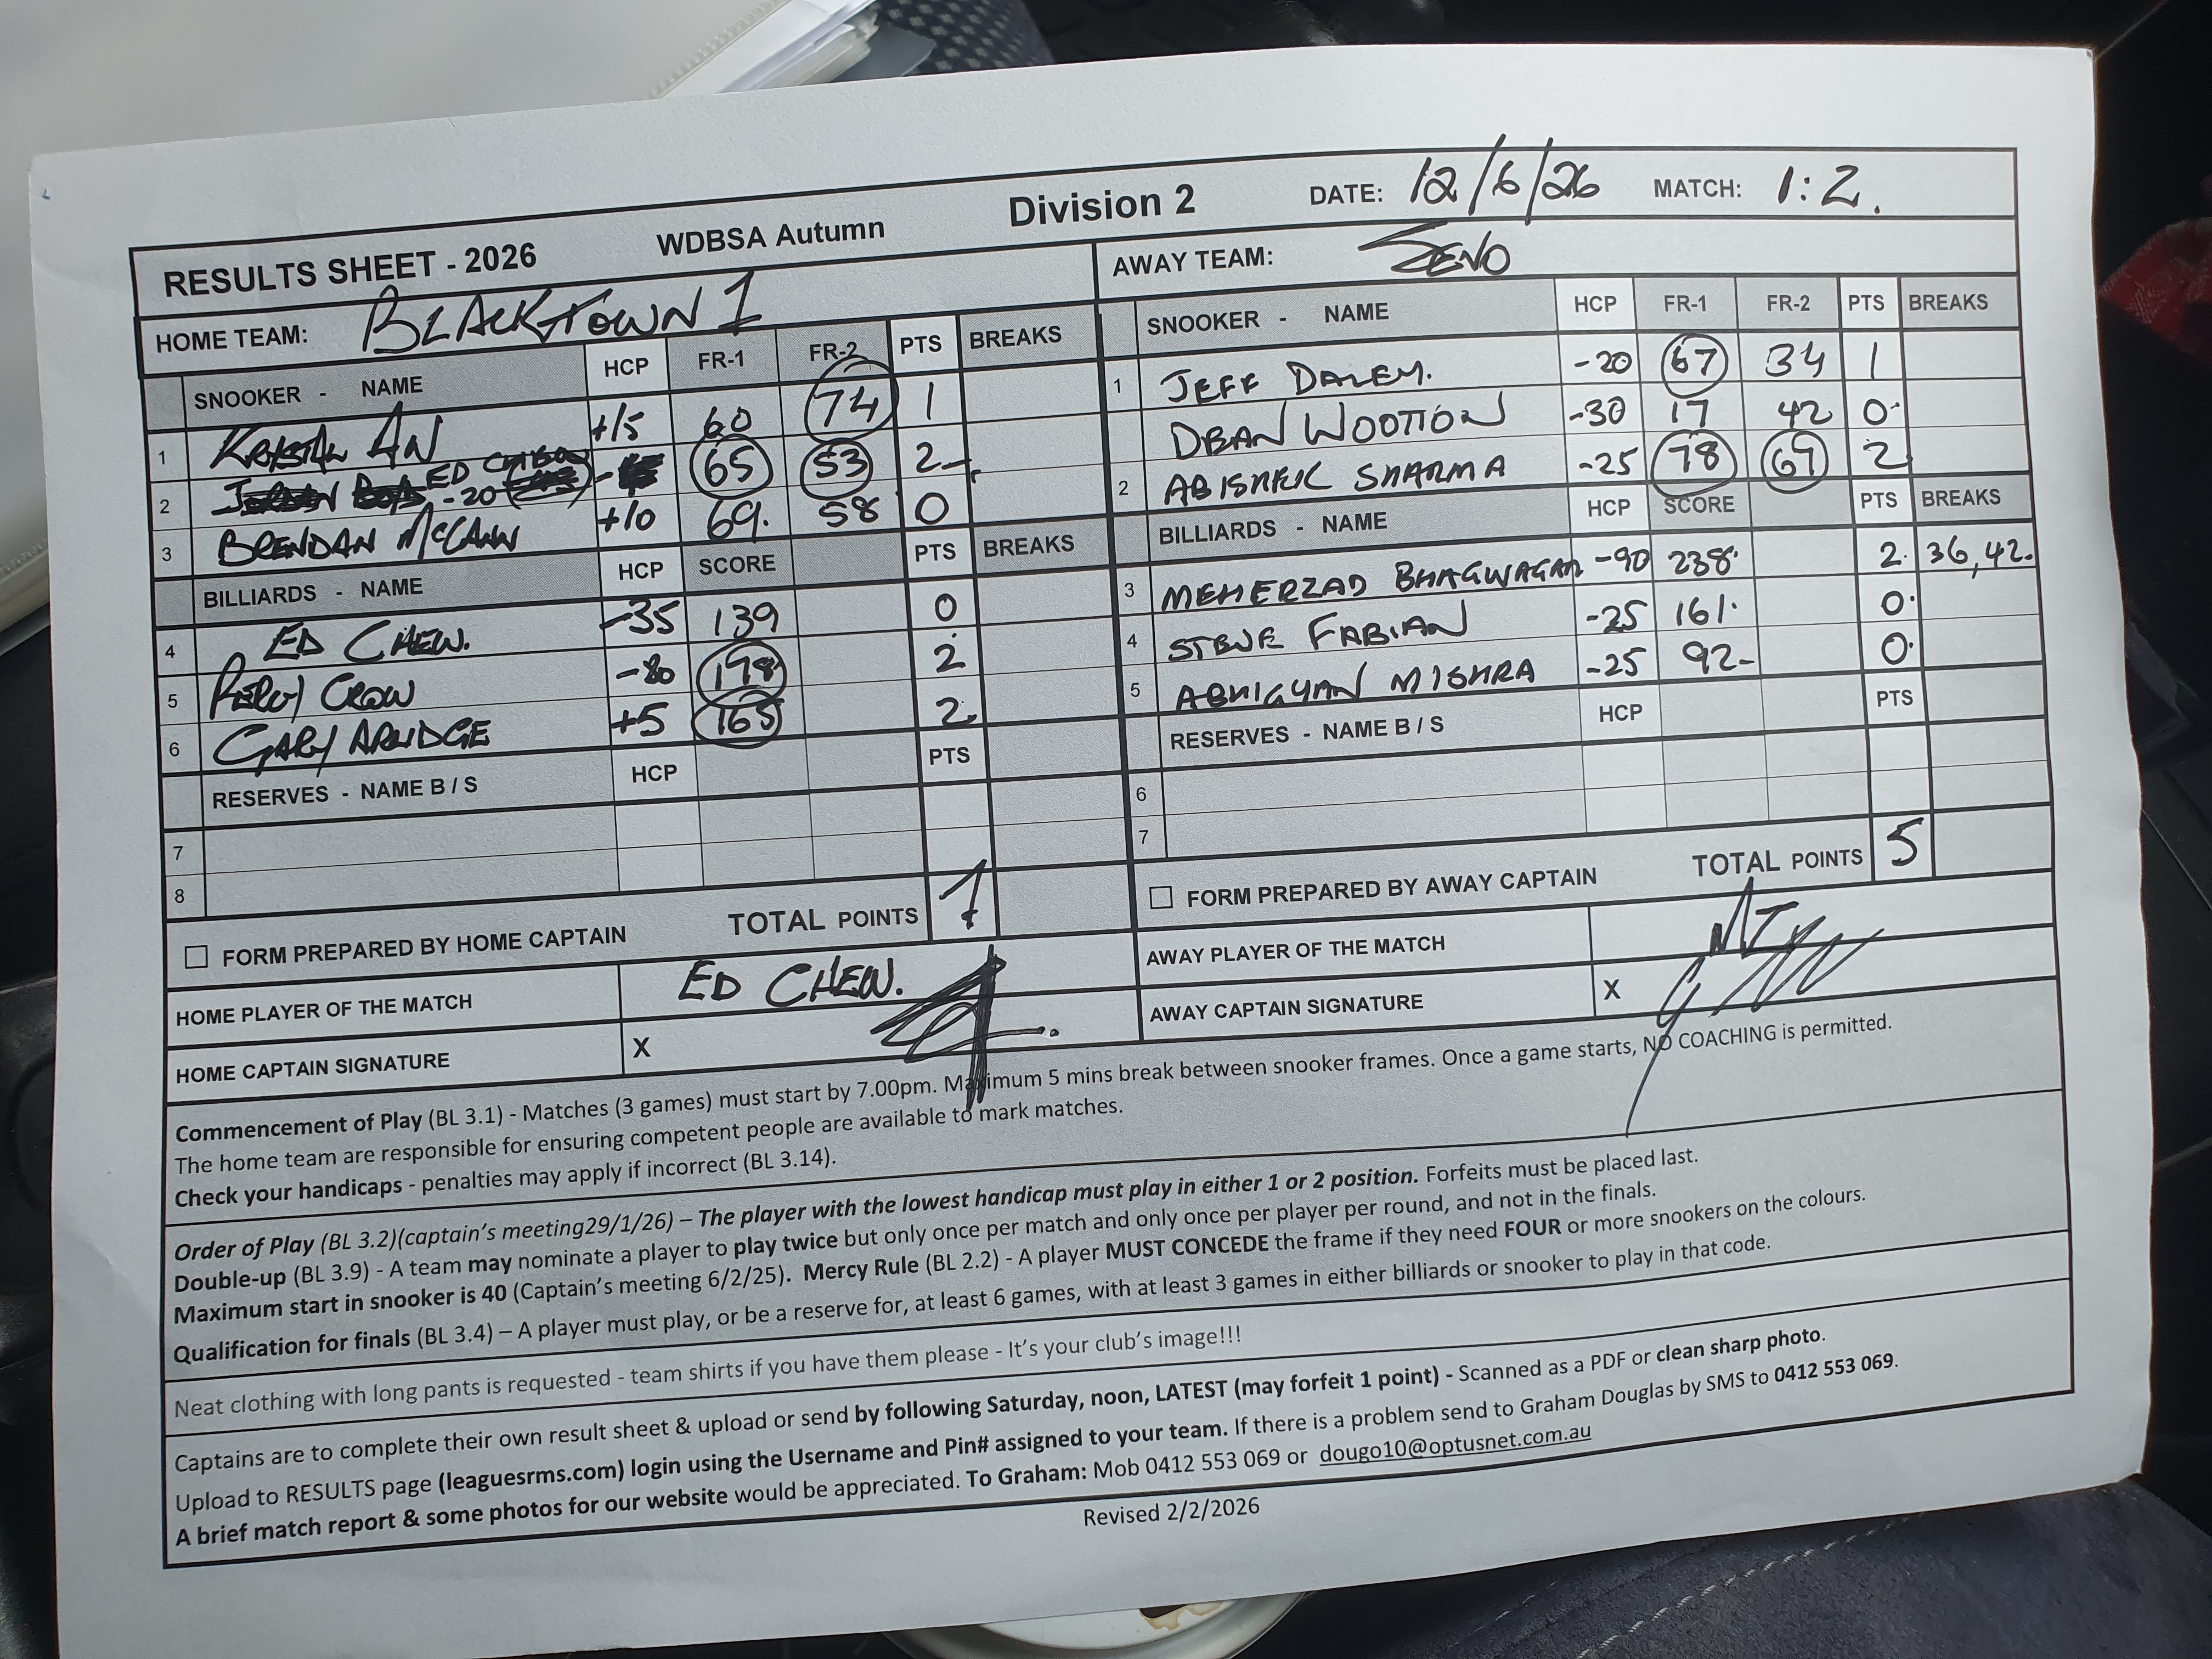 RESULTS SHEET - 2026 WDBSA Autumn Division 2 DATE: 12/6/26 MATCH: 1:2.
HOME TEAM: BLACKTOWN 1
SNOOKER - NAME HCP FR-1 FR-2 PTS BREAKS
1 AN +15 60 74 1
2 ED -20 65 53 2
3 BRENDAN McCANN +10 69. 58 0
BILLIARDS - NAME HCP SCORE PTS BREAKS
4 ED CHEW. -35 139 0
5 PERCY CROW -80 178 2
6 GARY -5 165 2
RESERVES - NAME B / S HCP PTS
7
8
FORM PREPARED BY HOME CAPTAIN TOTAL POINTS 7
HOME PLAYER OF THE MATCH ED CHEW.
HOME CAPTAIN SIGNATURE X
AWAY TEAM: SEVO
SNOOKER - NAME HCP FR-1 FR-2 PTS BREAKS
1 JEFF DALEY. -20 67 34 1
DEAN WOOTTON -30 17 42 0
2 ABISHEK SHARMA -25 78 67 2
BILLIARDS - NAME HCP SCORE PTS BREAKS
3 MEHERZAD BHAGWAGAR -90 238 2 36,42.
4 STEVE FABIAN -25 161 0
5 ABHIGYAN MISHRA -25 92 0
RESERVES - NAME B / S HCP PTS
6
7
FORM PREPARED BY AWAY CAPTAIN TOTAL POINTS 5
AWAY PLAYER OF THE MATCH
AWAY CAPTAIN SIGNATURE X
Commencement of Play (BL 3.1) - Matches (3 games) must start by 7.00pm. Maximum 5 mins break between snooker frames. Once a game starts, NO COACHING is permitted.
The home team are responsible for ensuring competent people are available to mark matches.
Check your handicaps - penalties may apply if incorrect (BL 3.14).
Order of Play (BL 3.2)(captain's meeting29/1/26) – The player with the lowest handicap must play in either 1 or 2 position. Forfeits must be placed last.
Double-up (BL 3.9) - A team may nominate a player to play twice but only once per match and only once per player per round, and not in the finals.
Maximum start in snooker is 40 (Captain's meeting 6/2/25). Mercy Rule (BL 2.2) - A player MUST CONCEDE the frame if they need FOUR or more snookers on the colours.
Qualification for finals (BL 3.4) – A player must play, or be a reserve for, at least 6 games, with at least 3 games in either billiards or snooker to play in that code.
Neat clothing with long pants is requested - team shirts if you have them please - It's your club's image!!!
Captains are to complete their own result sheet & upload or send by following Saturday, noon, LATEST (may forfeit 1 point) - Scanned as a PDF or clean sharp photo.
Upload to RESULTS page (leaguesrms.com) login using the Username and Pin# assigned to your team. If there is a problem send to Graham Douglas by SMS to 0412 553 069.
A brief match report & some photos for our website would be appreciated. To Graham: Mob 0412 553 069 or dougo10@optusnet.com.au
Revised 2/2/2026